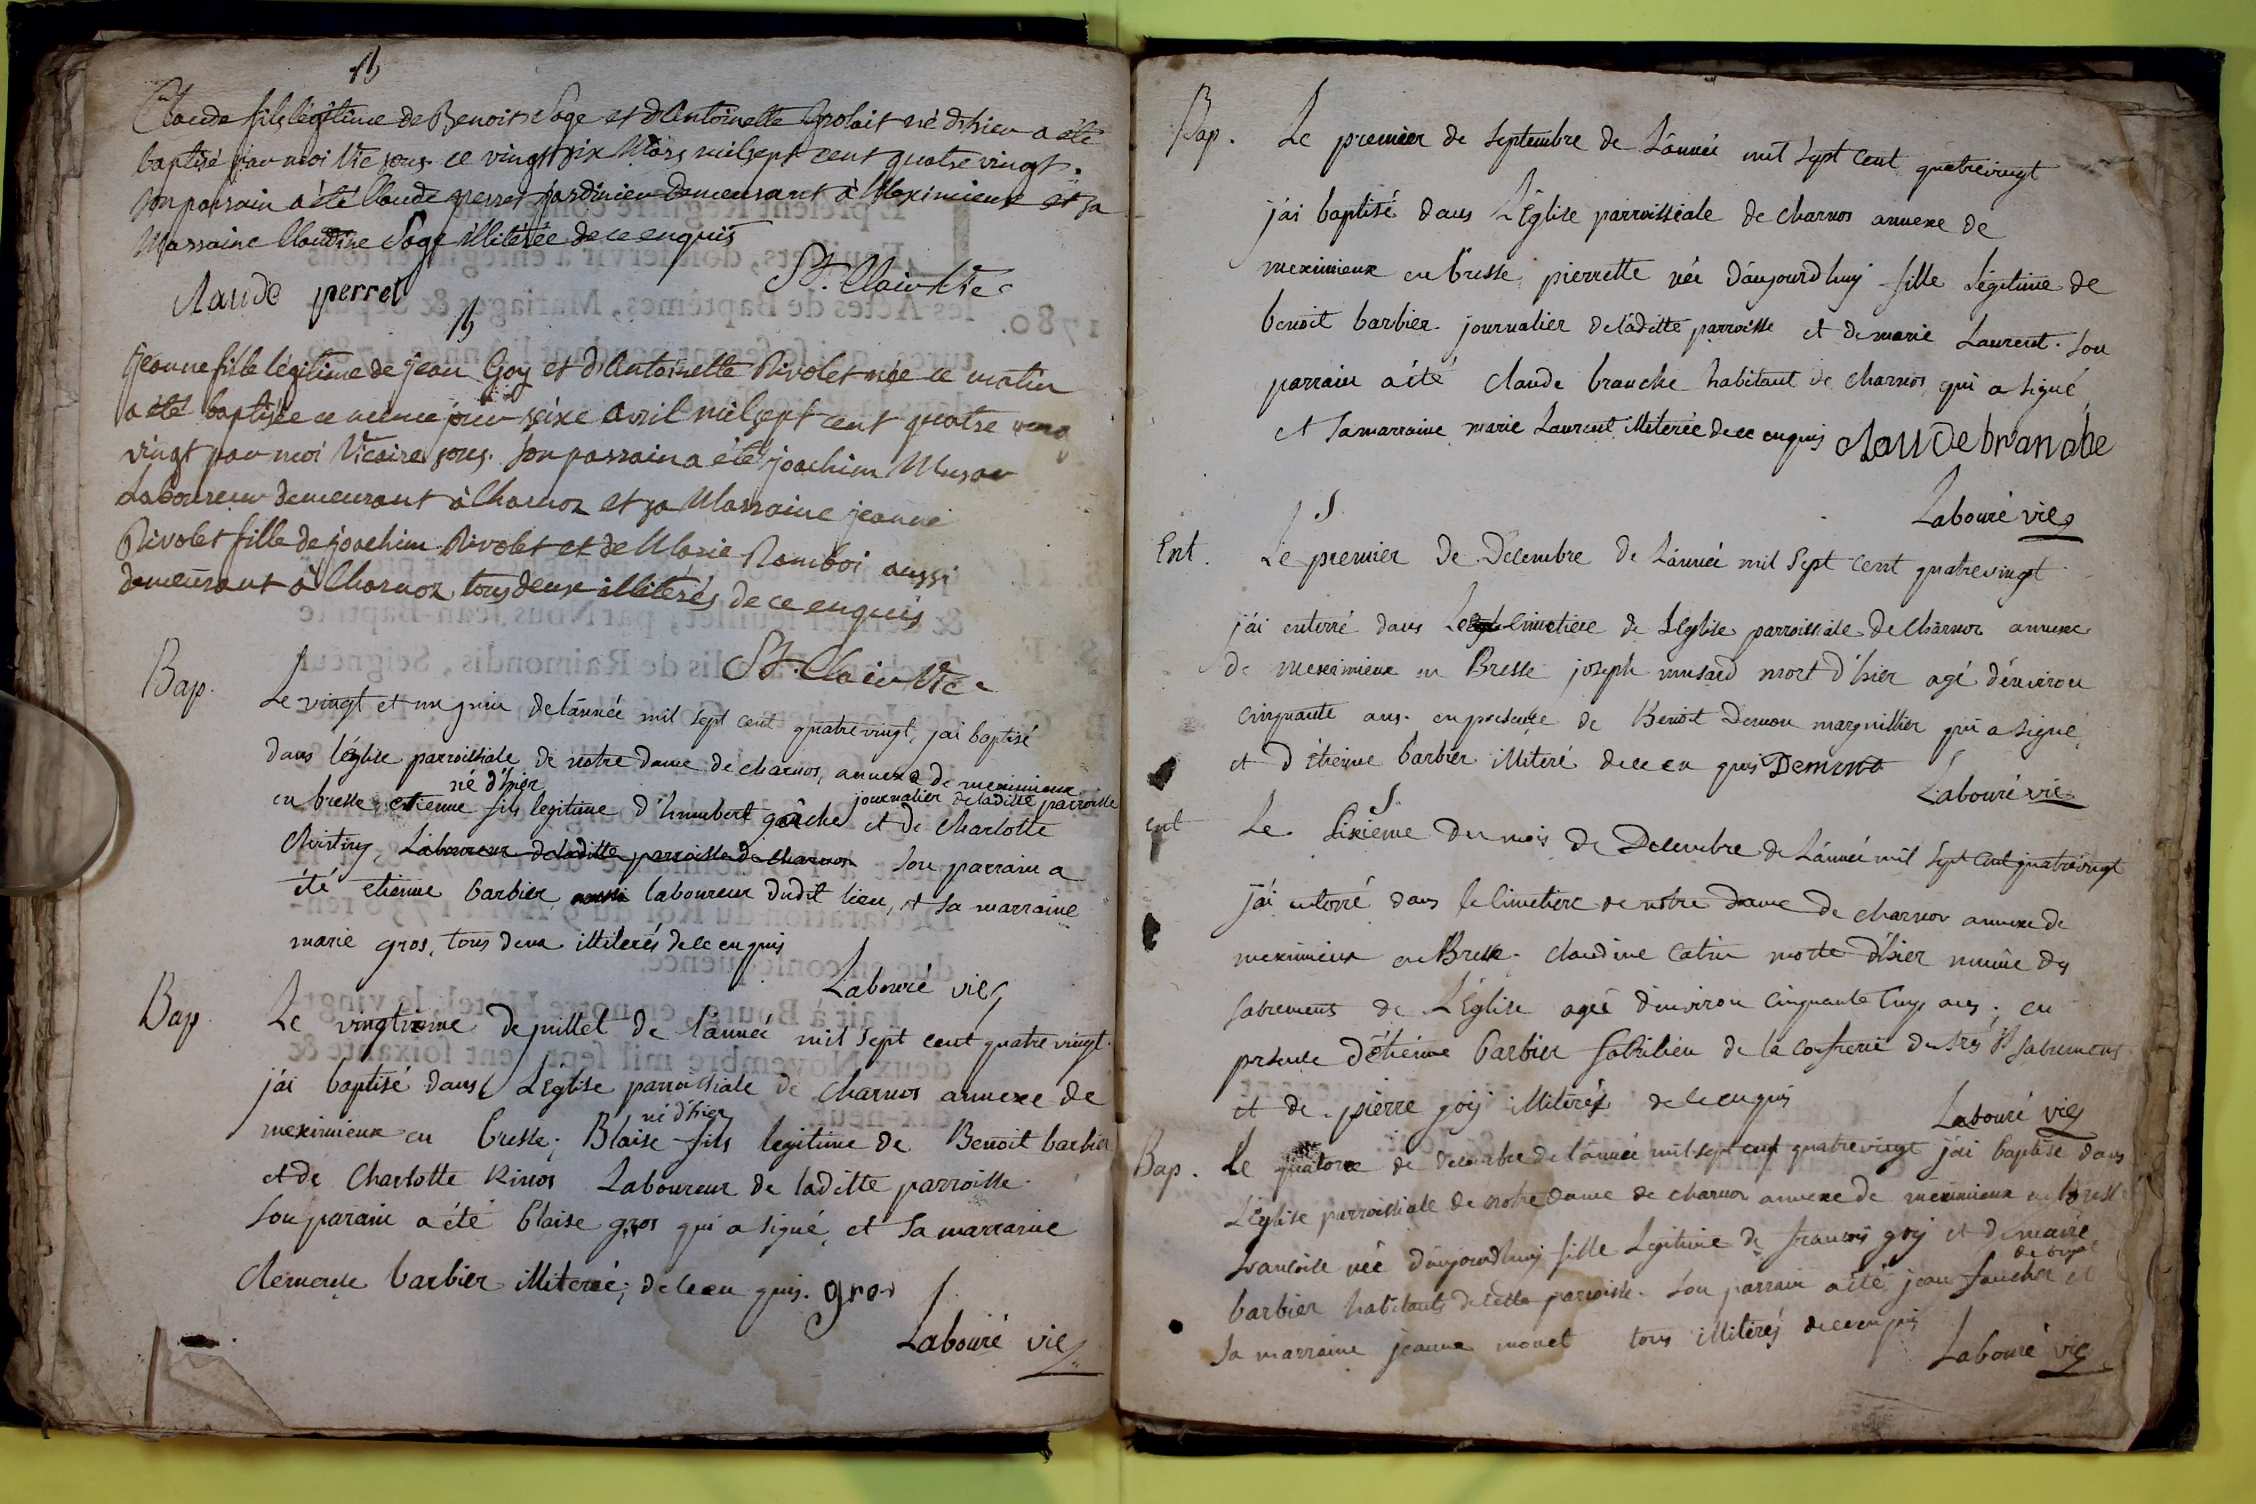 B
Claude fils légitime de Benoit Sage et d'Antoinette Grolait né d'hier a été
baptisé par moi Vic sous. ce vingt six Mars mil sept cent quatre vingt.
son parrain a été Claude perret jardinier demeurant à Meximieux et sa
Marraine Claudine Sage illitérée de ce enquis
Claude perret
St. Clair Vic
B
Jeanne fille légitime de jean Goy et d'Antoinette Rivolet née ce matin
a été baptisée ce meme jour seize Avril mil sept cent quatre
vingt par moi Vicaire sous. Son parrain a été joachim Musar
Laboureur demeurant à Charnoz et sa Marraine jeanne
Rivolet fille de joachim Rivolet et de Marie Ramboi aussi
demeurant à Charnoz tous deux illitérés de ce enquis
St. Clair Vic
Bap. Le vingt et un juin de l'année mil sept cent quatre vingt, j'ai baptisé
dans l'église parroissiale de notre dame de charnos, annexe de meximieux
né d'hier journalier de laditte parroisse
en bresse, etienne fils legitime d'humbert gâche et de Charlotte
Laboureur de laditte parroisse de charnoz son parrain a
été etienne barbier aussi laboureur dudit lieu, et sa marraine
marie gros, tous deux illiterés de ce enquis
Labouré vic
Bap Le vingtieme de juillet de l'année mil sept cent quatre vingt.
j'ai baptisé dans L'église parroissiale de Charnos annexe de
né d'hier
meximieux en bresse; Blaise fils legitime de Benoit barbier
et de Charlotte Rinos Laboureur de laditte parroisse.
Son parain a été blaise gros qui a signé, et sa marraine
clemence barbier illiterée; de ce en quis. gros
Labouré vic
Bap. Le premier de septembre de L'année mil sept cent quatrevingt
j'ai baptisé dans L'église parroissiale de charnos annexe de
meximieux en bresse, pierrette née d'aujourdhuy fille légitime de
benoit barbier journalier de laditte parroisse et de marie Laurent. son
parrain a été claude branche habitant de charnos, qui a signé,
et sa marraine marie Laurent illiterée de ce enquis claude branche
Labouré vic
S
Ent. Le premier de Décembre de L'année mil sept cent quatrevingt
j'ai enterré dans Le cimetière de L'église parroissiale de charnoz annexe
de meximieux en Bresse joseph musard mort d'hier agé d'environ
cinquante ans. en présence de Benoit Demon marguillier qui a signé,
et d'étienne barbier illiteré de ce en quis Demons
Labouré vic
S
ent Le sixieme du mois de Decembre de L'année mil sept cent quatrevingt
j'ai enterré dans le cimetière de notre dame de charnoz annexe de
meximieux en Bresse. claudine catin morte d'hier munie des
sacremens de L'église agée d'environ cinquante cinq ans; en
présence d'étienne barbier fabricien de la confrerie du très St sacrement
et de pierre goy illiterés de ce enquis
Labouré vic
Bap. Le quatorze de decembre de l'année mil sept cent quatrevingt j'ai baptisé dans
L'église parroissiale de notre dame de charnoz annexe de meximieux en bresse
francoise née d'aujourdhuy fille Legitime de francois goy et de marie
barbier habitants de cette parroisse. Son parrain a été jean faucher et
sa marraine jeanne monet tous illiterés de ce enquis
Labouré vic